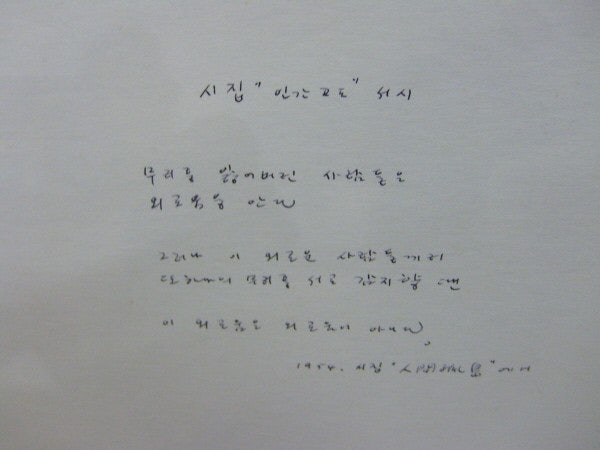 시집 "인간고도" 서시
무리를 잃어버린 사람들은
외로움을 안다
그러나 이 외로운 사람들끼리
또하나의 무리를 서로 감지할 땐
이 외로움도 외로움이 아니다.
1954. 시집 "人間孤島"에서